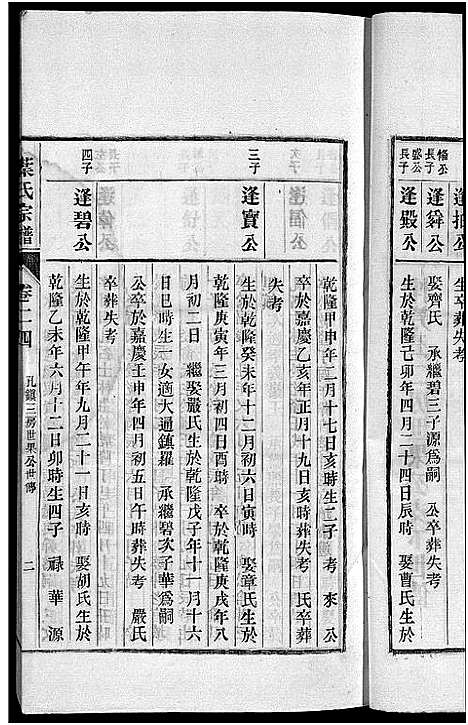 長子
盛公
長子
逢舜公
逢殿公
娶齊氏 承繼碧三子源為嗣 公卒葬失考
生於乾隆己卯年四月二十四日辰時 娶曹氏生於
乾隆甲申年二月十七日亥時生二子 考 來 公
卒於嘉慶乙亥年正月十九日亥時葬失考 氏卒葬
失考
三子
逢寶公
生於乾隆癸未年十二月初六日寅時 娶章氏生於
乾隆庚寅年三月初四日酉時 卒於乾隆庚戌年八
月初二日 繼娶嚴氏生於乾隆戊子年十一月十六
日巳時生一女適大通鎮羅 承繼碧次子華為嗣
公卒於嘉慶壬申年四月初五日午時葬失考 嚴氏
卒葬失考
四子
逢碧公
生於乾隆甲午年九月二十一日亥時 娶胡氏生於
乾隆乙未年六月十二日卯時生四子 祿 華 源
氏宗譜
卷二四
孔鎮三房世果公世傳
二